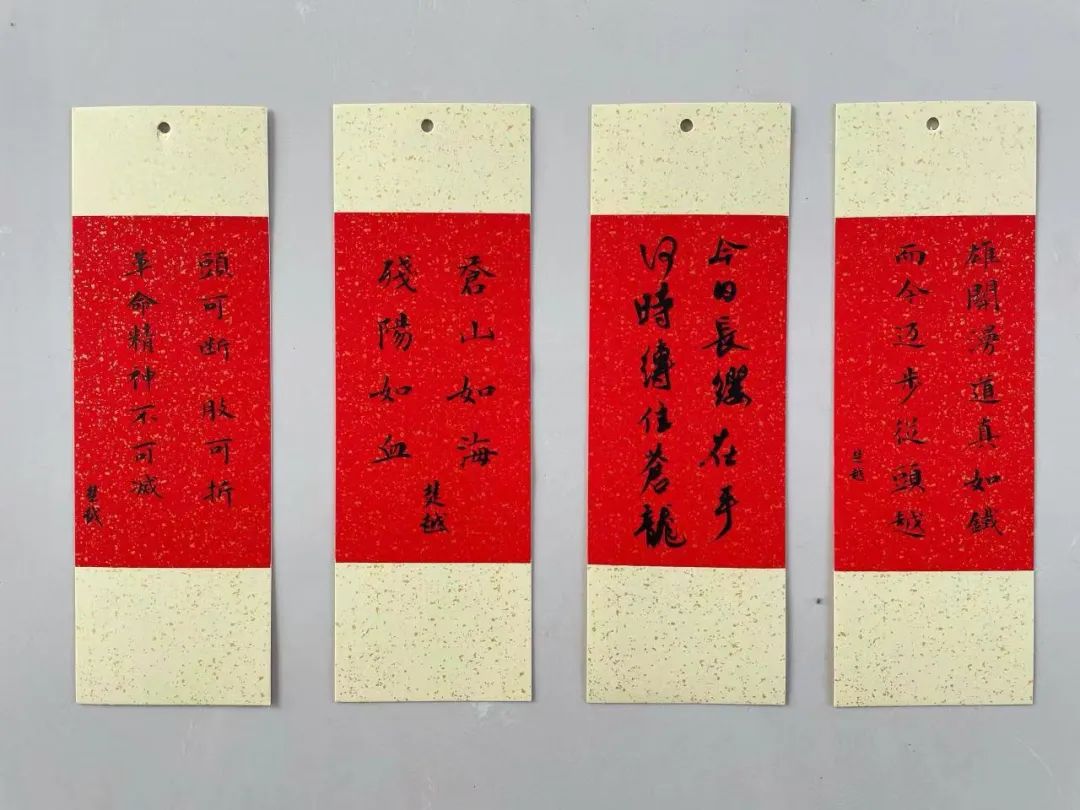 雄關漫道真如鐵
而今迈步從頭越
楚越
今日長纓在手
何時縛住蒼龍
蒼山如海
殘陽如血
楚越
頭可断肢可折
革命精神不可减
楚越